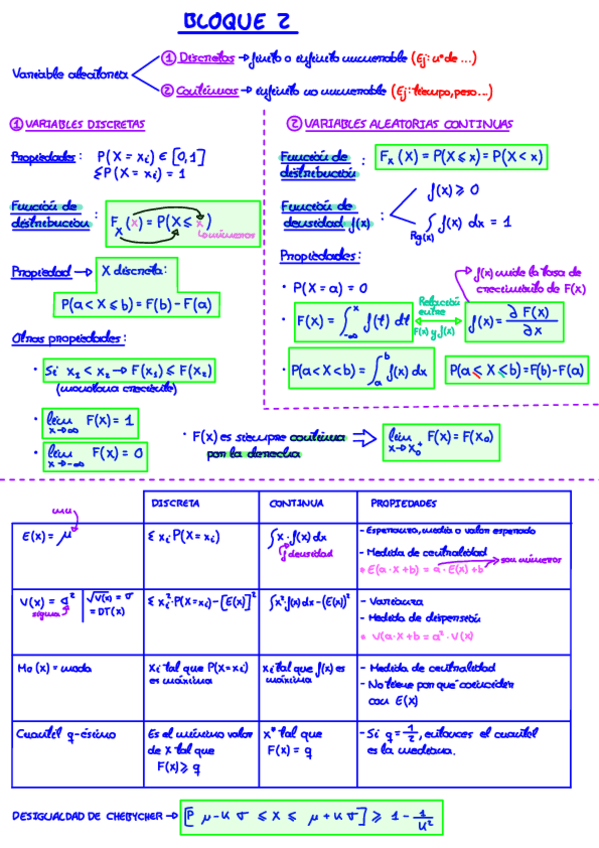 BLOQUE 2
Variable aleatoria
① Discretas → finito o infinito numerable (Ej: nº de ...)
② Continuas → infinito no numerable (Ej: tiempo, peso...)
① VARIABLES DISCRETAS
Propiedades: P(X = xi) ∈ [0,1]
ΣP(X = xi) = 1
Función de distribución: Fx(x) = P(X ≤ x)
números
Propiedad → X discreta:
P(a < X ≤ b) = F(b) - F(a)
Otras propiedades:
• Si x1 < x2 → F(x1) ≤ F(x2)
(monótona creciente)
• lim x→∞ F(x) = 1
• lim x→-∞ F(x) = 0
• F(x) es siempre continua por la derecha ⟹ lim x→x0+ F(x) = F(x0)
② VARIABLES ALEATORIAS CONTINUAS
Función de distribución: Fx(x) = P(X ≤ x) = P(X < x)
Función de densidad f(x):
f(x) ≥ 0
∫Rg(x) f(x) dx = 1
Propiedades:
• P(X = a) = 0
f(x) mide la tasa de crecimiento de F(x)
• F(x) = ∫-∞^x f(t) dt
Relación entre F(x) y f(x)
f(x) = ∂F(x)/∂x
• P(a < X < b) = ∫a^b f(x) dx
P(a ≤ X ≤ b) = F(b) - F(a)
DISCRETA CONTINUA PROPIEDADES
mu
E(x) = μ
Σ xi · P(X = xi)
∫x · f(x) dx
densidad
- Esperanza, media o valor esperado
- Medida de centralidad
• E(a · X + b) = a · E(x) + b → son números
V(x) = σ²
sigma
√V(x) = σ
= DT(x)
Σ xi² · P(X = xi) - [E(x)]²
∫x² · f(x) dx - (E(x))²
- Varianza
- Medida de dispersión
• V(a · X + b = a² · V(x)
Mo (x) = moda
xi tal que P(X = xi) es máxima
xi tal que f(x) es máxima
- Medida de centralidad
- No tiene por qué coincidir con E(x)
Cuantil q-ésimo
Es el mínimo valor de X tal que F(x) ≥ q
x* tal que F(x) = q
- Si q = 1/2, entonces el cuantil es la mediana.
DESIGUALDAD DE CHEBYCHER → [P μ - k σ ≤ X ≤ μ + k σ] ≥ 1 - 1/k²